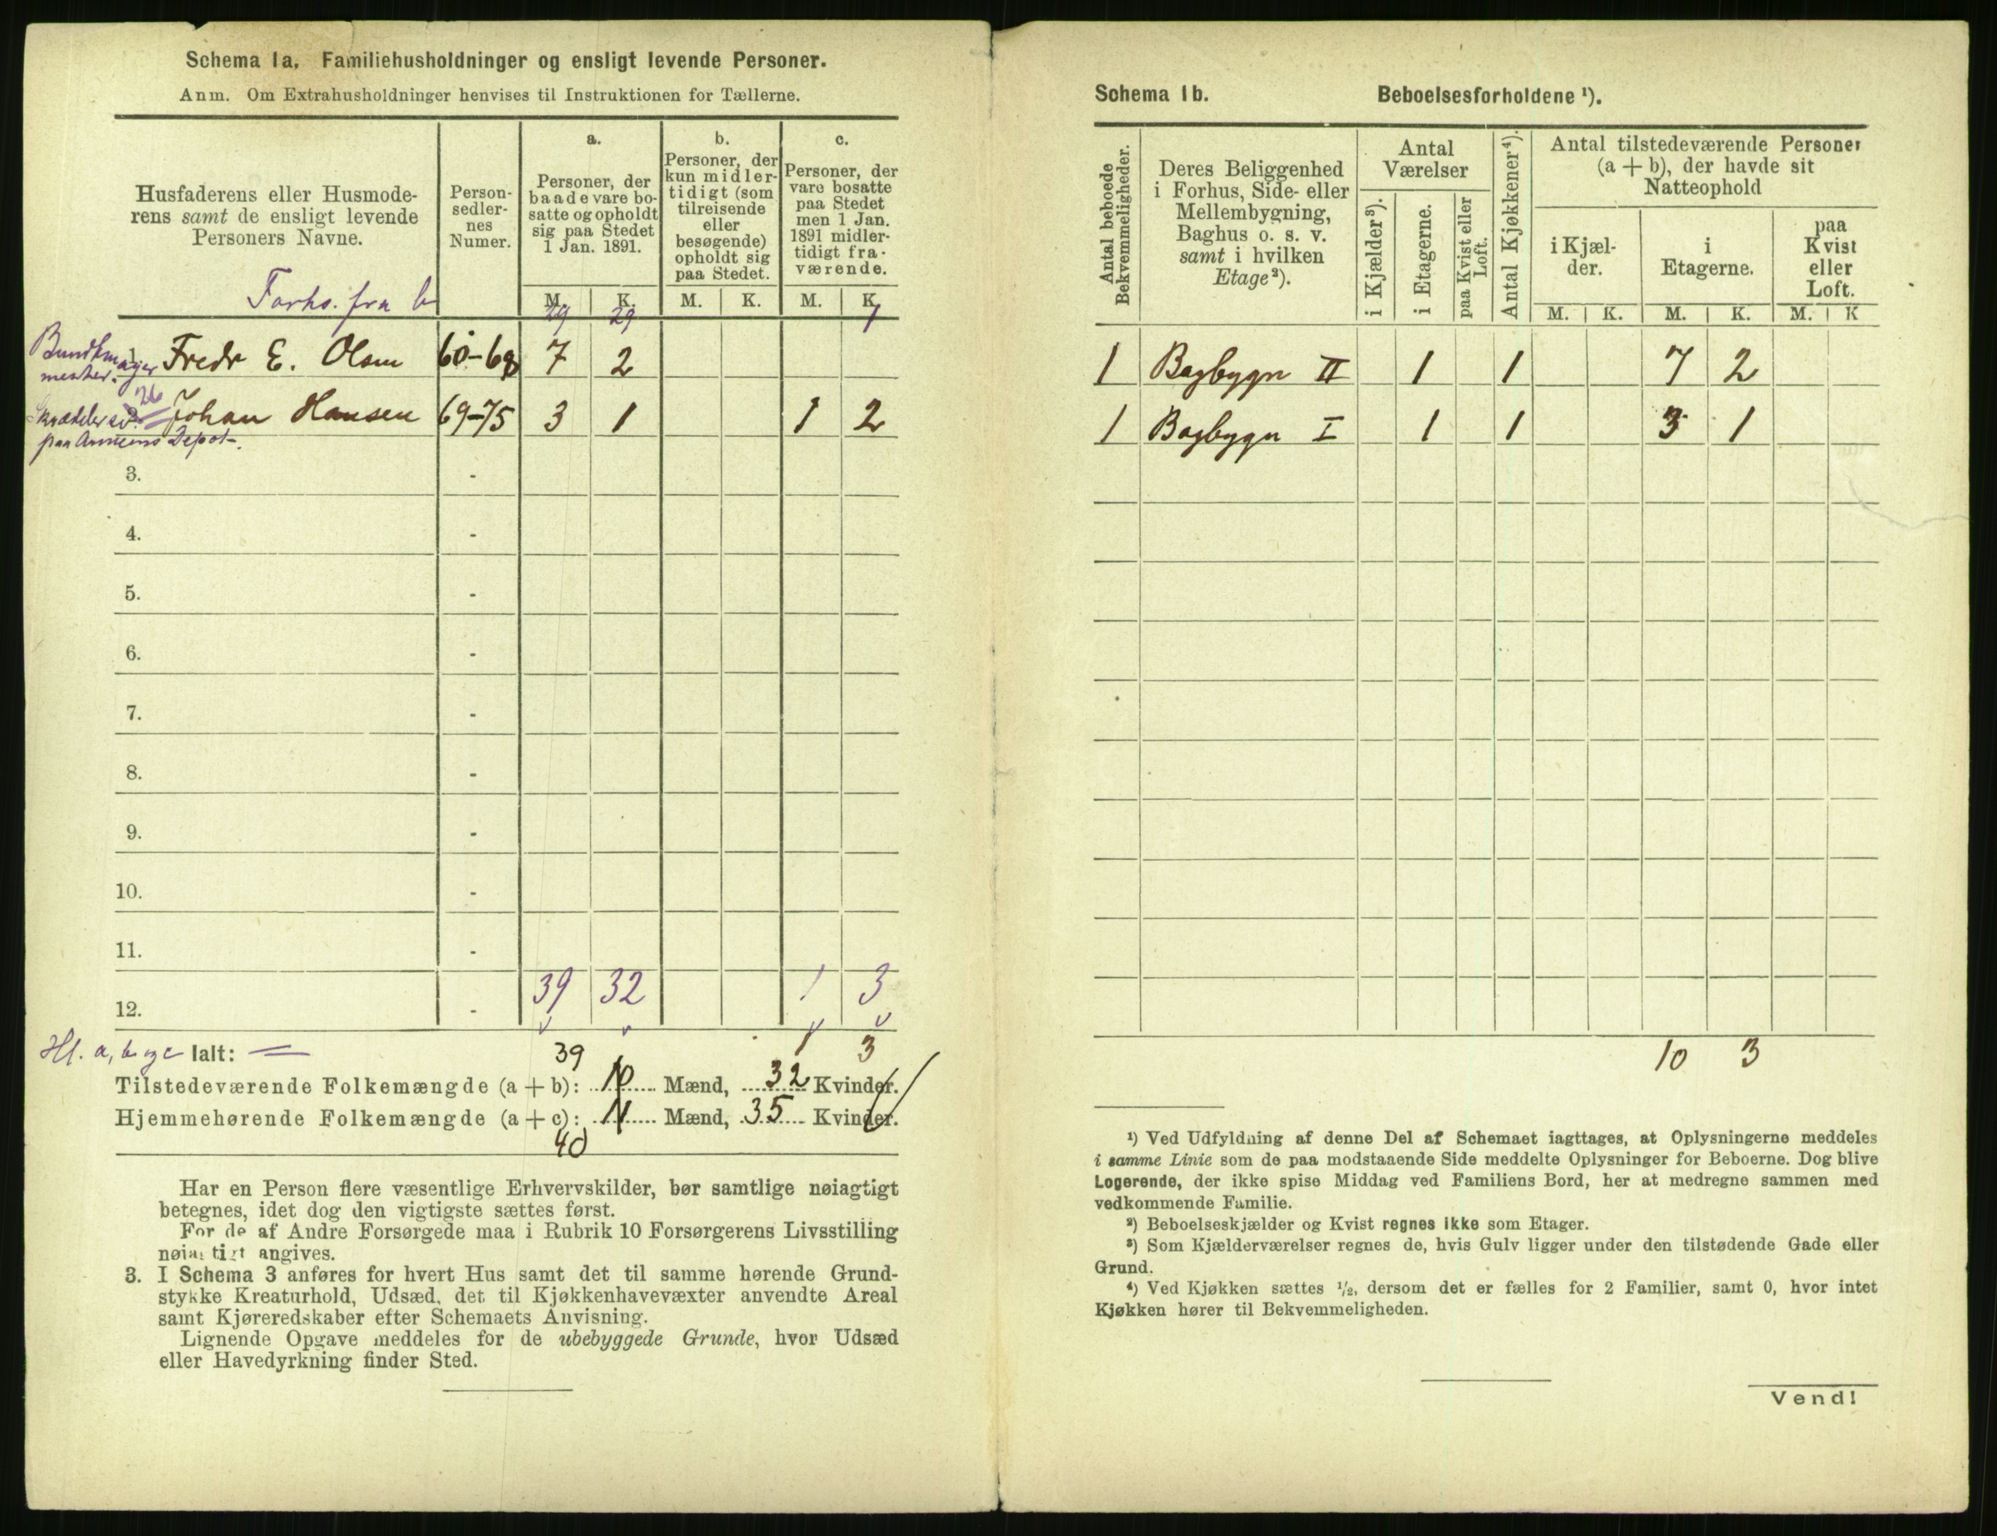 Schema 1a. Familiehusholdninger og ensligt levende Personer.
Anm. Om Extrahusholdninger henvises til Instruktionen for Tællerne.
Husfaderens eller Husmode-
rens samt de ensligt levende
Personers Navne.
Person-
sedler-
nes
Numer.
a.
Personer, der
baade vare bo-
satte og opholdt
sig paa Stedet
1 Jan. 1891.
b.
Personer, der
kun midler-
tidigt (som
tilreisende
eller
besøgende)
opholdt sig
paa Stedet.
c.
Personer, der
vare bosatte
paa Stedet
men 1 Jan.
1891 midler-
tidigt fra-
værende.
M. K. M. K. M. K.
Forhs. fra b 29 29 1
Fredr E. Olsen 60-68 7 2
26 Johan Hansen 69-75 3 1 1 2
paa Depot.
3. -
4. -
5. -
6. -
7. -
8. -
9. -
10. -
11. -
12. - 39 32 1 3
Hf. a, b og c Ialt: 1 3
39
Tilstedeværende Folkemængde (a + b): 10 Mænd, 32 Kvinder.
Hjemmehørende Folkemængde (a + c): 11 Mænd, 35 Kvinder.
40
Har en Person flere væsentlige Erhvervskilder, bør samtlige nøiagtigt
betegnes, idet dog den vigtigste sættes først.
For de af Andre Forsørgede maa i Rubrik 10 Forsørgerens Livsstilling
nøiagtigt angives.
3. I Schema 3 anføres for hvert Hus samt det til samme hørende Grund-
stykke Kreaturhold, Udsæd, det til Kjøkkenhavevæxter anvendte Areal
samt Kjøreredskaber efter Schemaets Anvisning.
Lignende Opgave meddeles for de ubebyggede Grunde, hvor Udsæd
eller Havedyrkning finder Sted.
Schema 1b. Beboelsesforholdene ¹).
Antal beboede
Bekvemmeligheder.
Deres Beliggenhed
i Forhus, Side- eller
Mellembygning,
Baghus o. s. v.
samt i hvilken
Etage²).
Antal
Værelser
i Kjælder³).
i Etagerne.
paa Kvist eller
Loft.
Antal Kjøkkener⁴).
Antal tilstedeværende Personer
(a + b), der havde sit
Natteophold
i Kjæl-
der.
i
Etagerne.
paa
Kvist
eller
Loft.
M. K. M. K. M. K
1 Bagbygn II 1 1 7 2
1 Bagbygn I 1 1 3 1
10 3
¹) Ved Udfyldning af denne Del af Schemaet iagttages, at Oplysningerne meddeles
i samme Linie som de paa modstaaende Side meddelte Oplysninger for Beboerne. Dog blive
Logerende, der ikke spise Middag ved Familiens Bord, her at medregne sammen med
vedkommende Familie.
²) Beboelseskjælder og Kvist regnes ikke som Etager.
³) Som Kjælderværelser regnes de, hvis Gulv ligger under den tilstødende Gade eller
Grund.
⁴) Ved Kjøkken sættes ¹/₂, dersom det er fælles for 2 Familier, samt 0, hvor intet
Kjøkken hører til Bekvemmeligheden.
Vend!